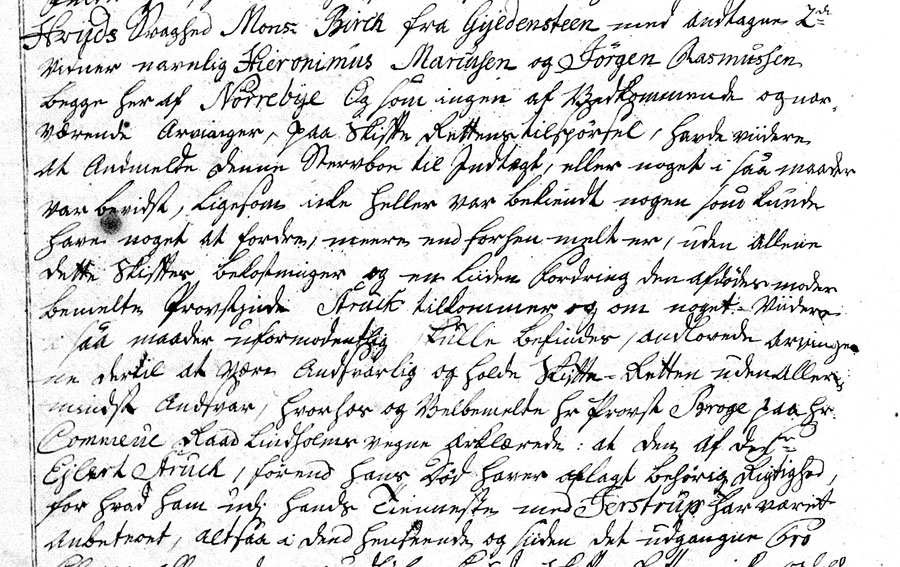 Svaghed Mons: Birch fra Gyldensteen med andtagne 2de
Vidner navnlig Hieronimus Mariusen og Jörgen Rasmussen
begge her af Nörrebye Og som ingen af Vedkommende og nær,
værende Arvinger, paa Skifte Rettens tilspörsel, havde viidere
at Anmelde denne Sterfboe til Indtægt, eller noget i saa maader
var bevidst, Ligesom icke heller var bekiendt nogen som kunde
have noget at fordre, meere end forhen melt er, uden alleene
dette Skiftes bekostninger og en liden fordring den afdödes moder
bemelte Provstinde Struck tilkommer og om noget Viidere
i saa maader uformodentlig skulle befindes, andlovede arvinger
ne dertil at være Andsvarlig og holde Skifte-Retten uden Aller
mindste Andsvar, hvorhos og Velbemelte hr Provst Broge paa hr.
Commerce Raad Lindholms vegne Erklærede: at den af
Eylert Struck, förend hans död haver aflagt behörig Rigtighed,
for hvad ham udj hands Tienneste med Jerstrup har været
Anbetroet, altsaa i dend henseende og siden det udgangne Pro